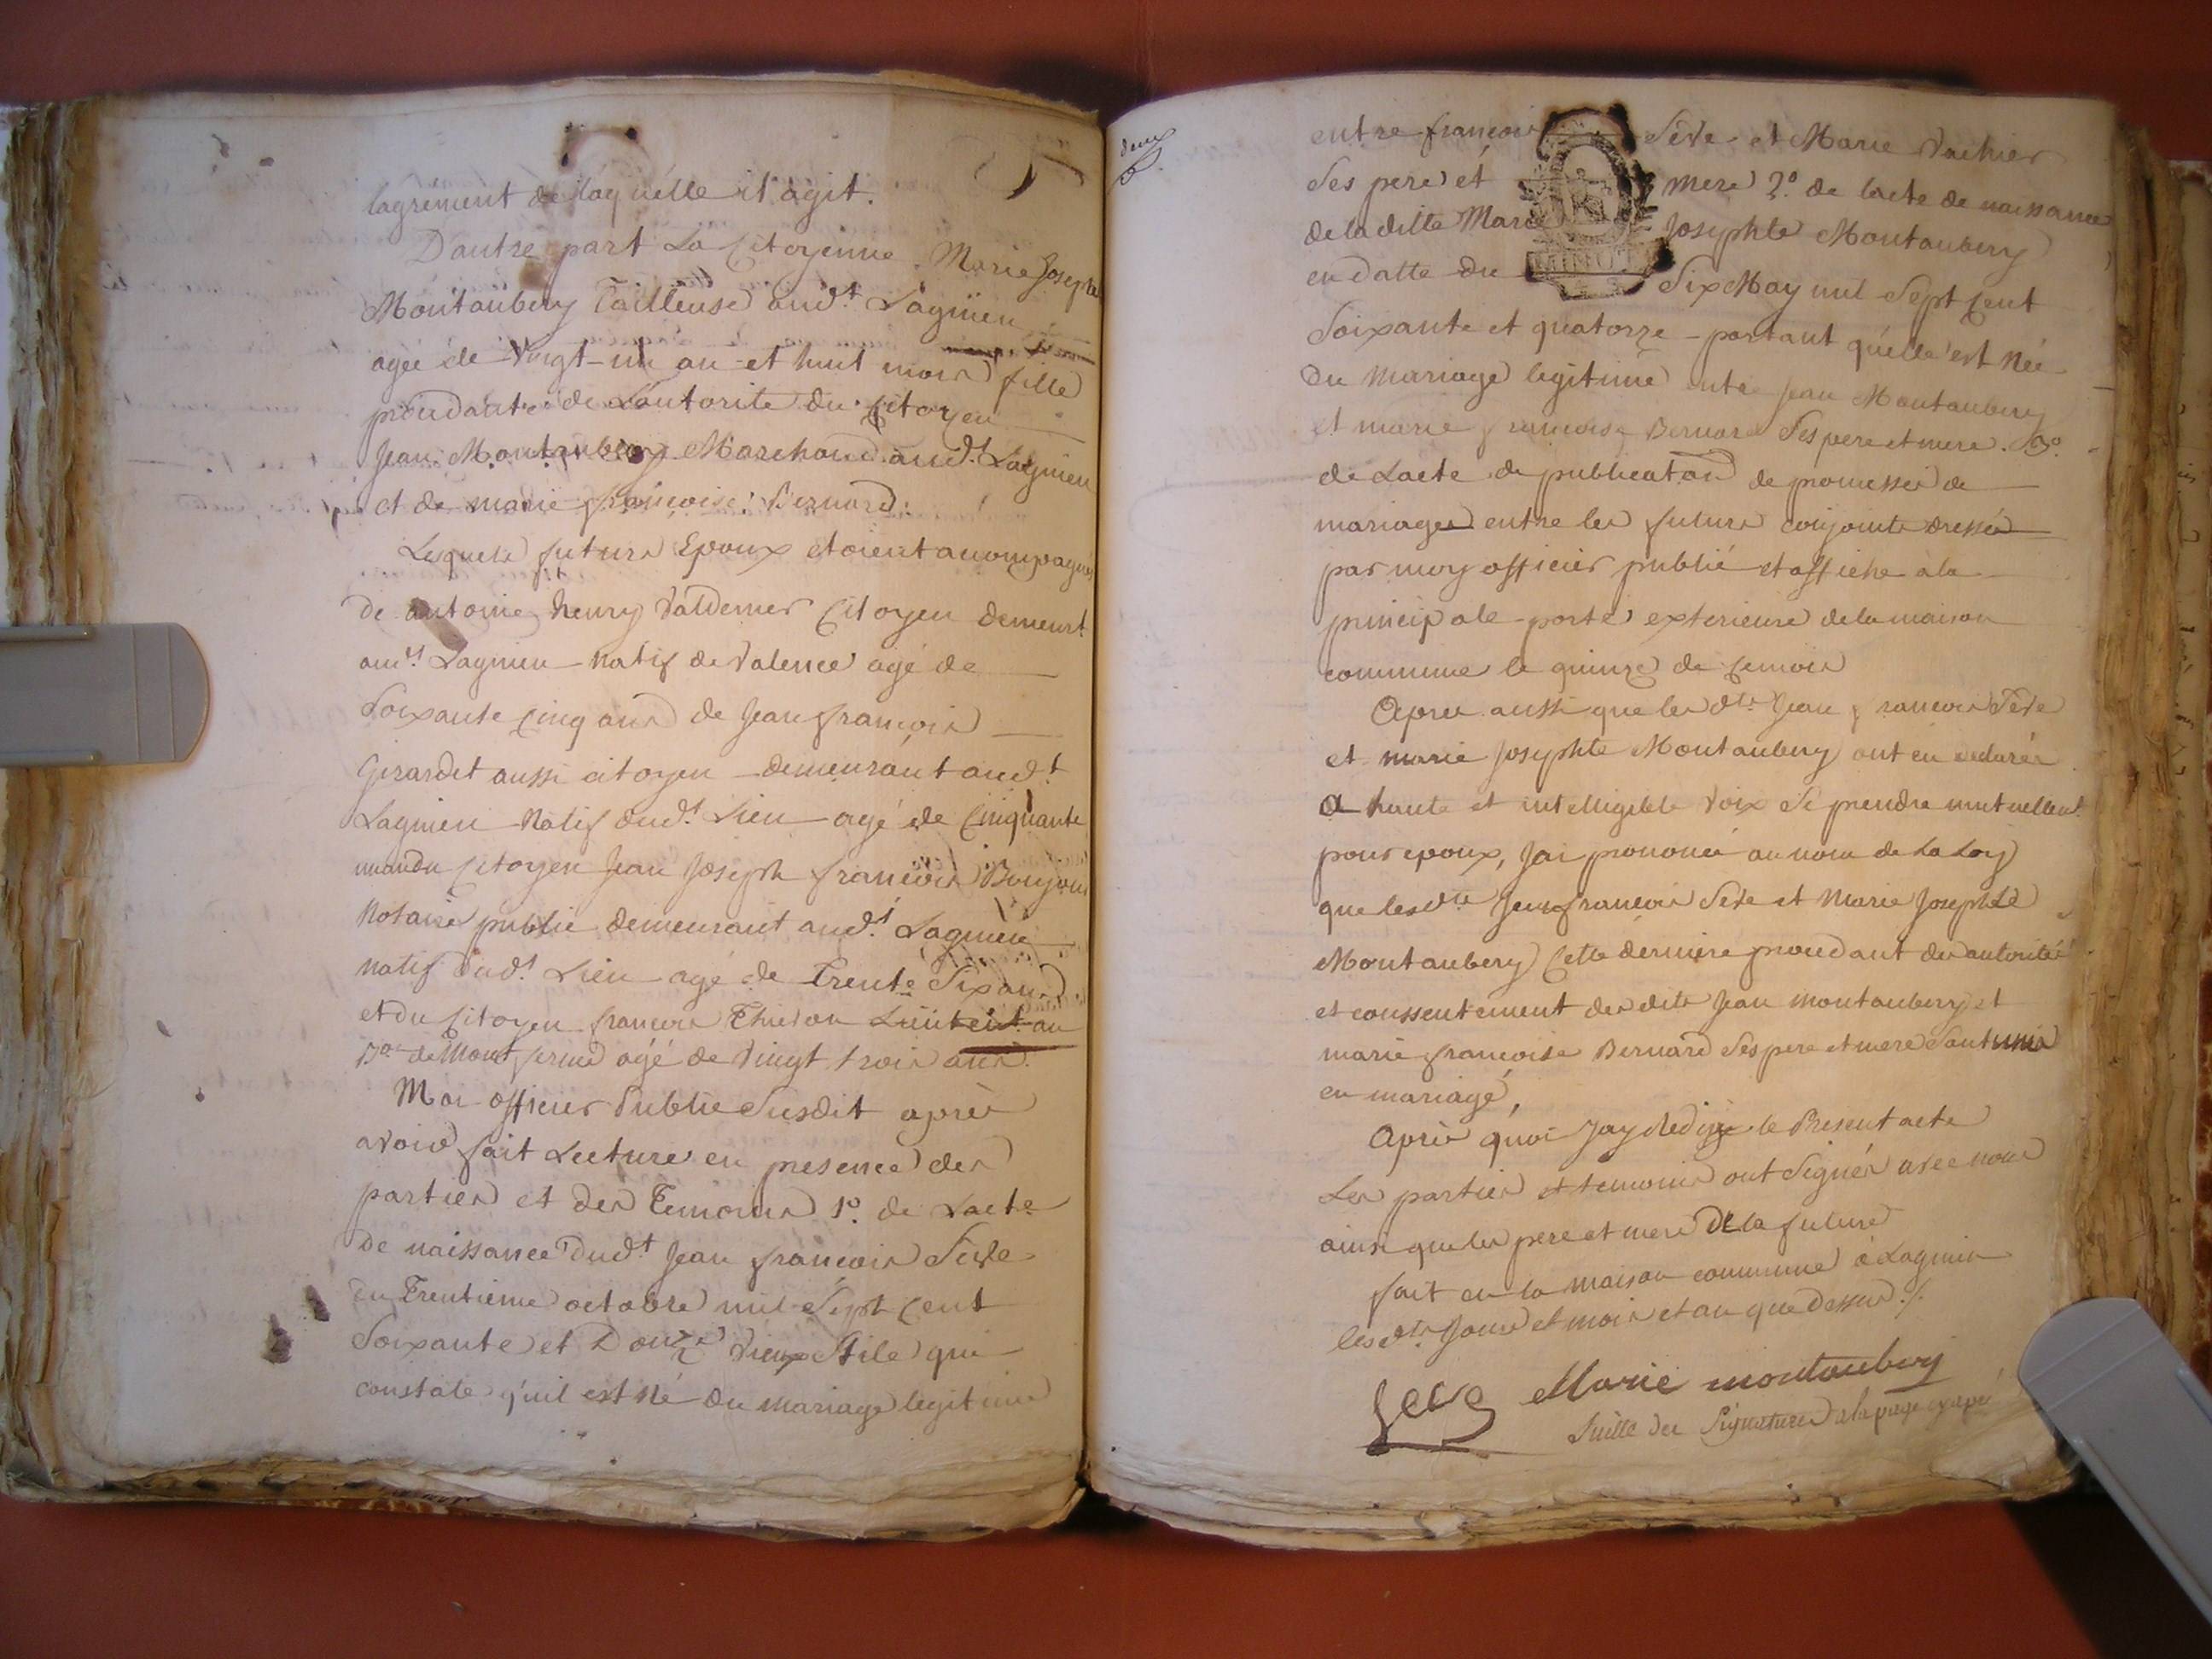 lagrément de laquélle il agit.
D'autre part La Citoyenne Marie Josephte
Montaubery Tailleuse aud.t Lagnieu
agée de Vingt-un an et huit mois fille
prócédante de L'autorité du Citoyen
Jean Montaubery Marchand aud.t Lagnieu
et de marie françoise Bernard.
Lesquels futurs Epoux etoient acompagnés
de antoine henry Valdemer Citoyen demeurt
aud.t Lagnieu natif de Valence agé de
Soixante Cinq ans de Jean françois
Girardet aussi citoyen demeurant aud.t
Lagnieu Natif dud.t Lieu agé de Cinquante
un an du Citoyen Jean Joseph françois
Notaire public demeurant aud.t Lagnieu
natif dud.t Lieu agé de trente Six ans
et du Citoyen francois au
age de Vingt trois ans.
Moi officier Public Susdit après
avoir fait Lecture en presence des
parties et des Temoins 1.o de Lacte
de naissance dud.t Jean françois Sève
du Trentième octobre mil Sept Cent
Soixante et Douze Vieux Stile qui
constate qu'il est Né du mariage legitime
deux
entre françois Sève et Marie Vachier
Ses pere et mere 2.o de lacte de naissance
de la ditte Marie Josephte Montaubery
en datte du Six May mil Sept Cent
Soixante et quatorze portant quélle est Née
du Mariage legitime entre Jean Montaubery
et marie francoise Bernard Ses pere et mere. 3.o
de Lacte de publication de promesses de
mariages entre les futurs conjoints dressée
par moy officier publié et affiché à la
principale porte exterieure de la maison
commune le quinze de ce mois
Apres aussi que les dts Jean francois Sève
et marie Josephte Montaubery ont eu declarés
a haute et intelligible Voix Se prendre mutuellemt
pour epoux, Jai prononcé au nom de La Loy
que lesdts Jean francois Sève et Marie Josephte
Montaubery Cette dernière procédant des autorité
et conssentement des dits Jean Montaubery et
marie françoise Bernard Ses pere et mere Sont unis
en mariage,
Après quoi Jay Redigé le Présent acte
Les parties et temoins ont Signés avec nous
ainsi que les pere et mere De la future
fait en la maison commune à Lagnieu
lesdts Jour et mois et an que Dessus ./.
Seve Marie montaubery
Suitte des Signatures a la page cy apré